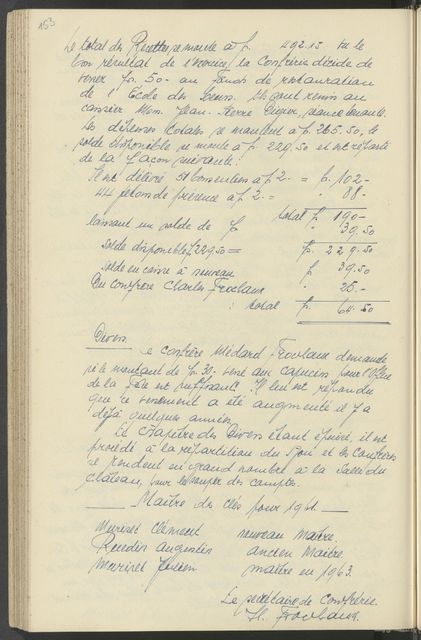 153
Le total des Recettes se monte à fr. 492.15 Vu le
bon résultat de l'exercice, la Confrérie décide de
verser fr. 50.- au Fonds de restauration
de l'Ecole des Soeurs.
caissier Mons. Jean-Pierre séance tenante.
Les dépenses totales se montent à fr. 265.50, le
solde disponible se monte à fr. 229.50 et est réparti
de la façon suivante:
Il est délivré 51 à fr 2.- = fr. 102.-
44 jetons de présence à fr. 2.- = " 88.-
total fr 190.-
laissant un solde de fr " 39.50
solde disponible fr 229.50 = fr. 229.50
solde en caisse à nouveau fr 39.50
Du confrère Charles Froelaux " 25.-
: total fr. 64.50
Divers
Le confrère Médard Froelaux demande
si le montant de fr. 30.- versé aux capucins pour l'Office
de la fête est suffisant. Il leur est répondu
que ce versement a été augmenté il y a
déjà quelques années.
Le chapitre des Divers étant épuisé, il est
procédé à la répartition du et les confrères
se rendent en grand nombre à la Salle du
Château, pour le souper des comptes.
Maître des clés pour 1961.
Muriset Clément nouveau maître.
Ruedin Augustin ancien Maître
Muriset maître en 1963.
Le secrétaire de Confrérie
Froelaux.